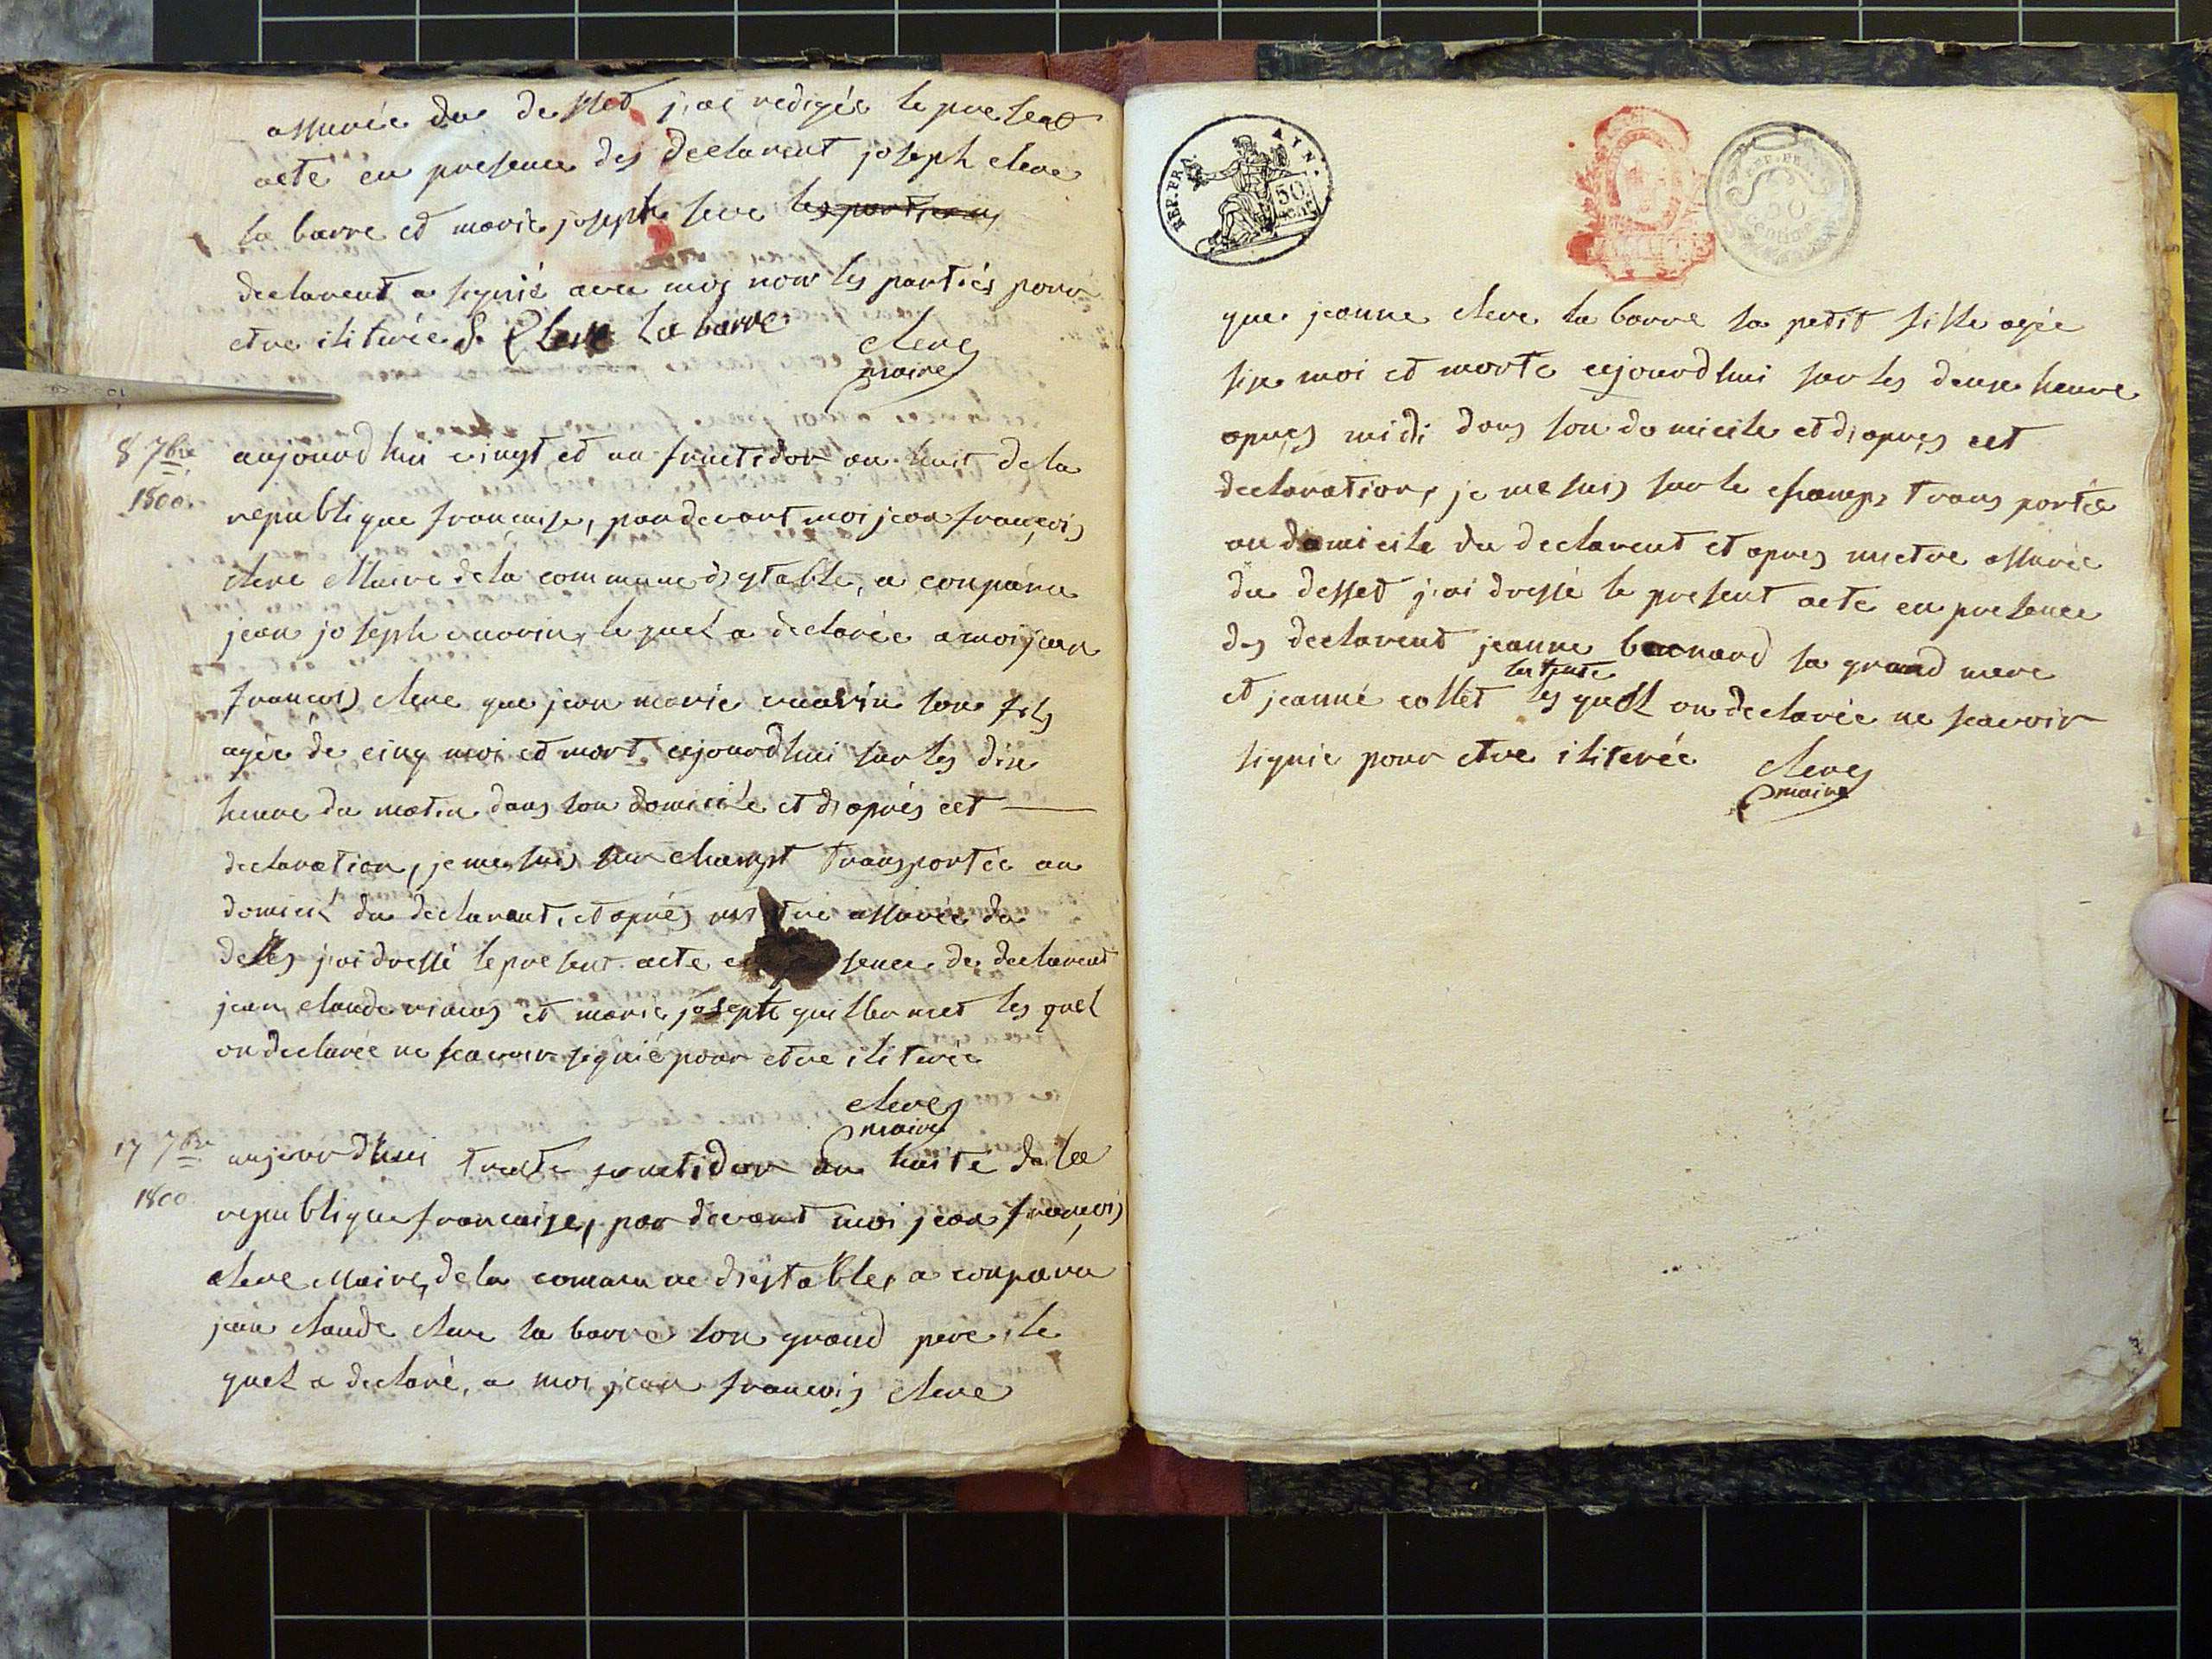 assurée du desset j'ai redigée le present
acte en presence des declarent joseph clerc
la barre et marie joseph serve les parties
declarent a signié avec moi non les partiés pour
etre iliterée J. Clerc La barre
clerc
maire
8 7bre
1800.
aujourdhui vingt et un fructidor an huit de la
republique francaise, pardevant moi jean françois
clerc Maire de la commune d'ytable, a conparu
jean joseph le quel a declarée a moi jean
francois clerc que jean marie son fils
agée de cinq moi et mort aujourdhui sur les dix
heure du matin dans son domicile et d'après cet
declaration, je me suis sur champt transportée au
domicil du declarant, et aprés assurée du
desses j'ai dressé le present acte en sence de declarent
jean claude et marie joseph guillermet les quel
on declarée ne scavoir signié pour etre iliterée
clerc
maire
17 7bre
1800
aujourdhui trente fructidor an huité de la
republique francaise, par devant moi jean françois
clerc Maire, de la commune d'eytables a conparu
jean claude clerc la barre son grand pere, le
quel a declaré, a moi jean francois clerc
REP. FRA. AYN.
50
REP. FRA.
50
centimes
que jeanne clerc la barre sa petit fille agée
six moi et morte aujourdhui sur les deux heure
apres midi dans son domicile et d'apres cet
declaration, je me suis sur le champs transportée
au domicile du declarent et apres metre assurée
du desset j'ai dressé le present acte en presence
des declarent jeanne bernard sa grand mere
et jeanne collet sa tente les quel on declarée ne scavoir
signié pour etre iliterée
clerc
maire